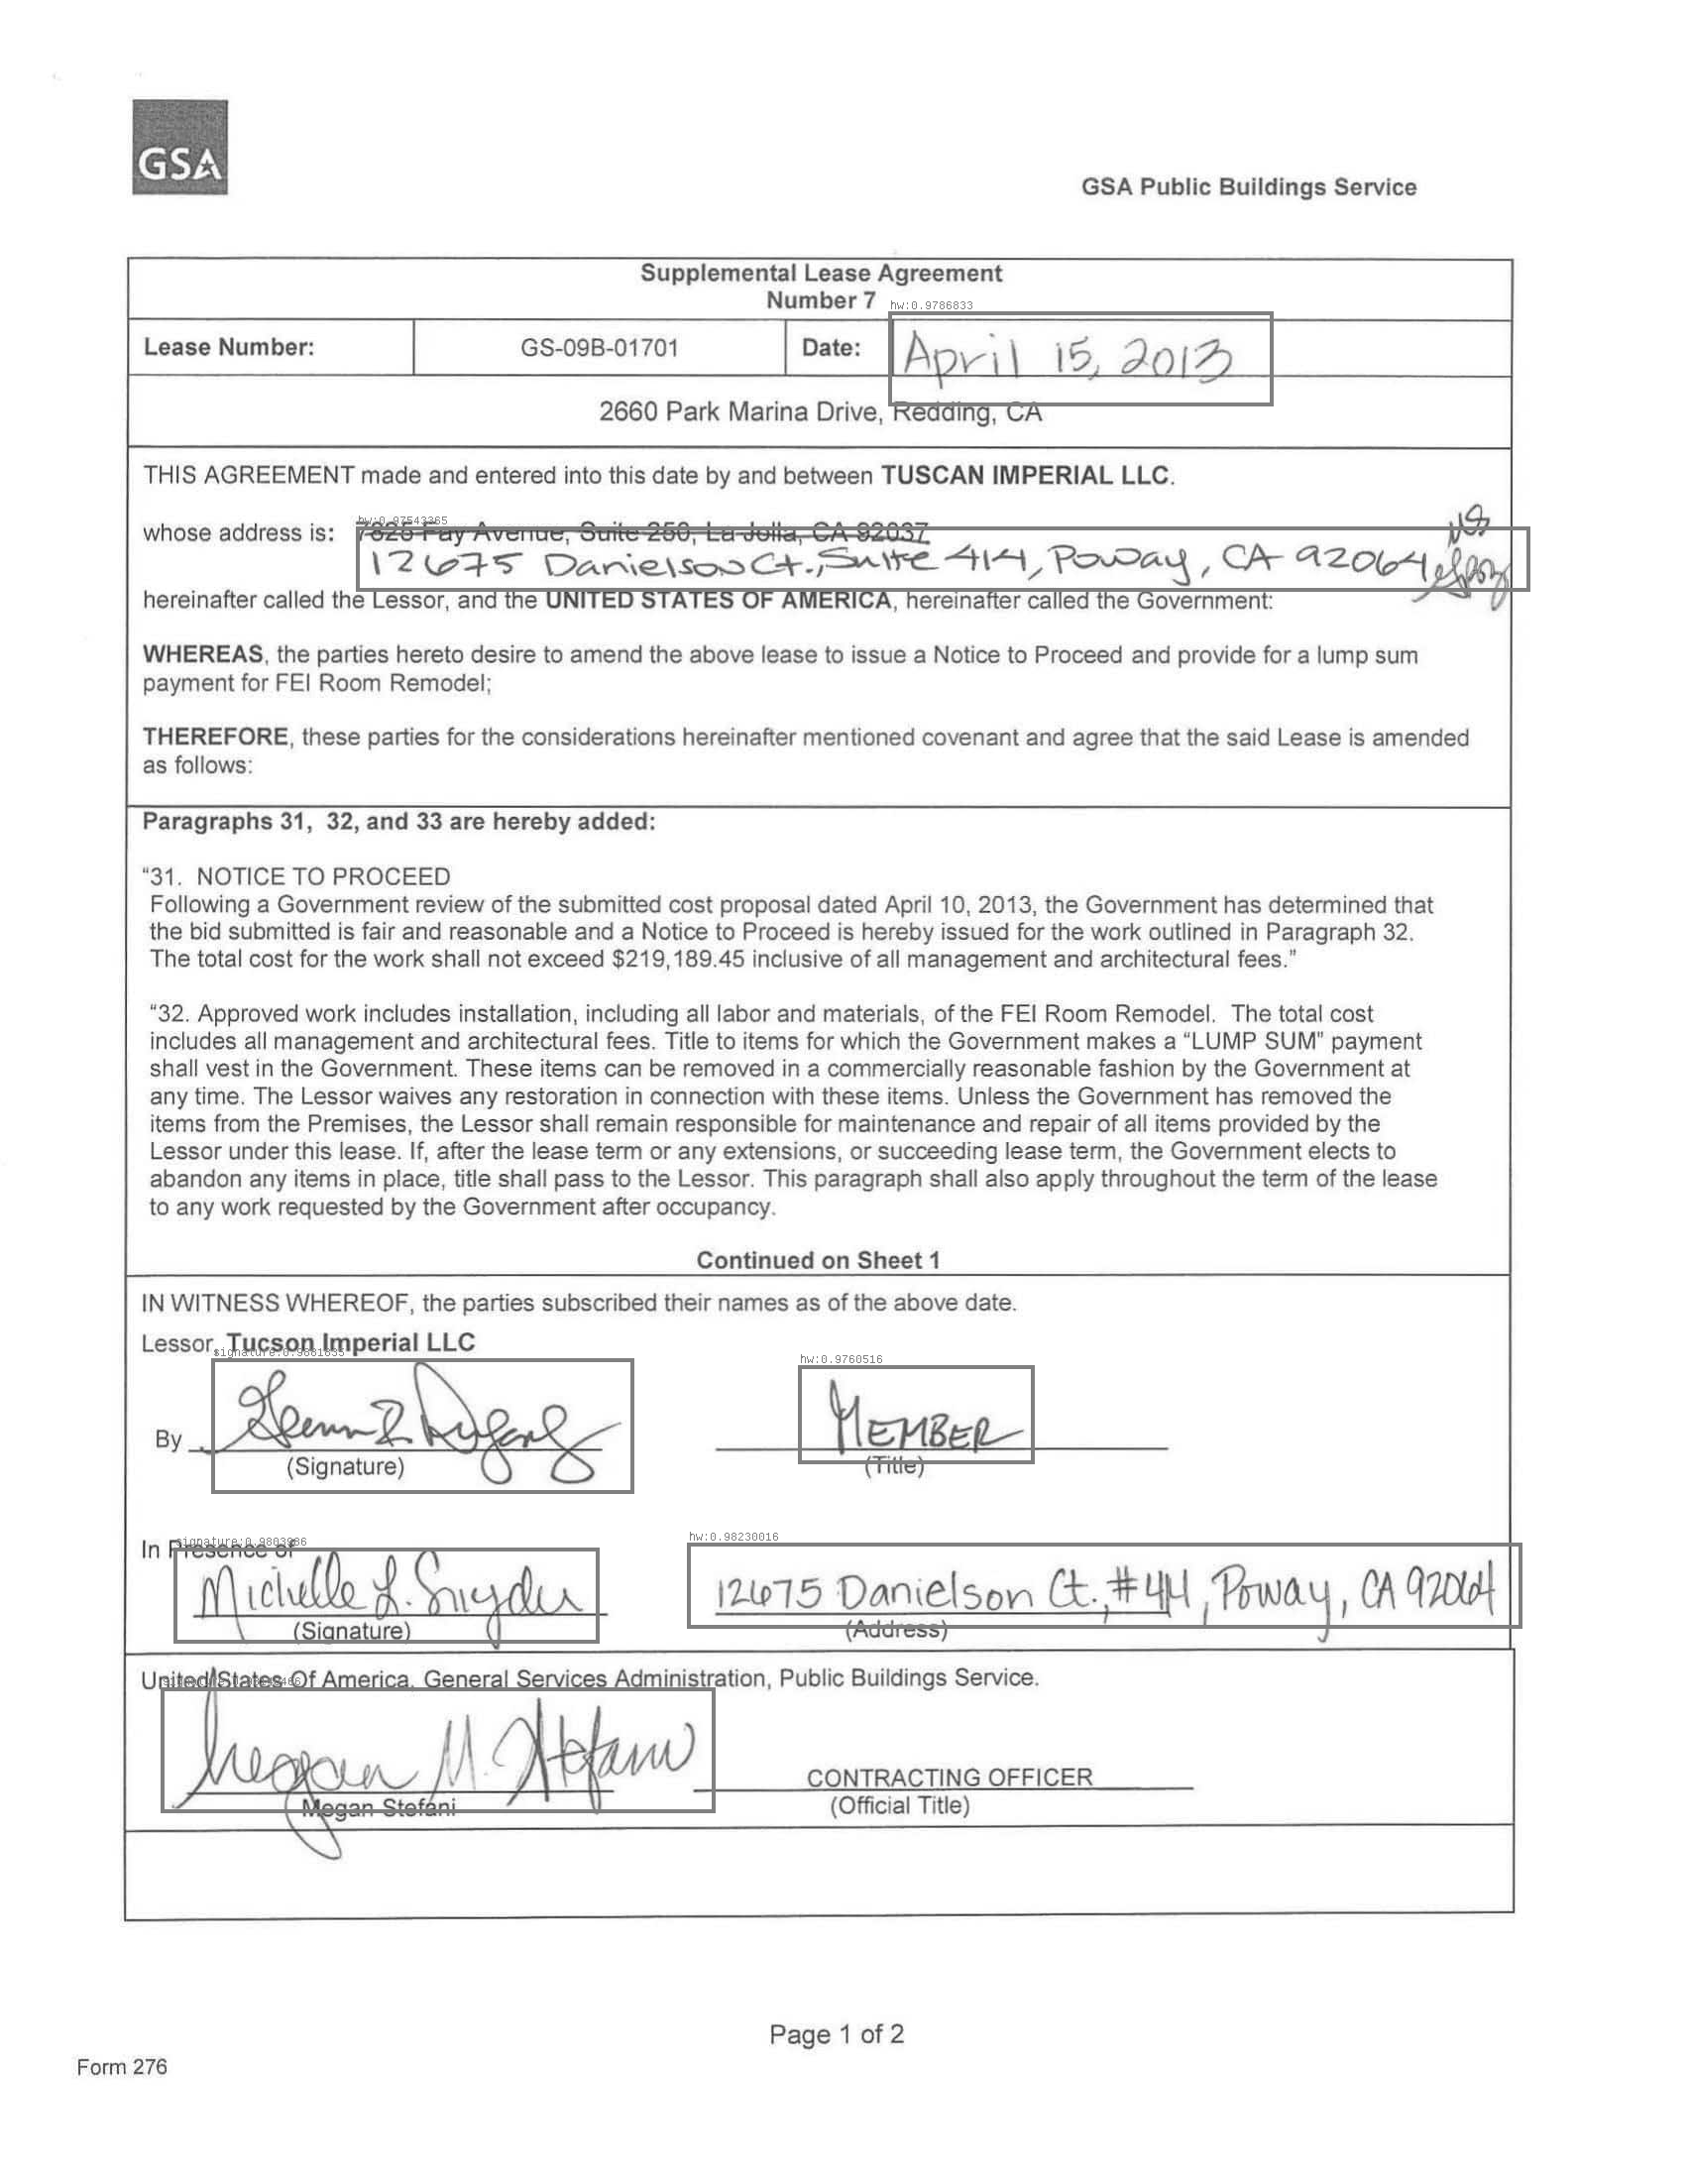 GSA
GSA Public Buildings Service
Supplemental Lease Agreement
Number 7
hw:0.9786833
Lease Number: GS-09B-01701 Date: April 15, 2013
2660 Park Marina Drive, Redding, CA
THIS AGREEMENT made and entered into this date by and between TUSCAN IMPERIAL LLC.
hw:0.97543365
whose address is: 7825 Fay Avenue, Suite 250, La Jolla, CA 92037
12675 Danielson Ct., Suite 414, Poway, CA 92064
hereinafter called the Lessor, and the UNITED STATES OF AMERICA, hereinafter called the Government:
WHEREAS, the parties hereto desire to amend the above lease to issue a Notice to Proceed and provide for a lump sum
payment for FEI Room Remodel;
THEREFORE, these parties for the considerations hereinafter mentioned covenant and agree that the said Lease is amended
as follows:
Paragraphs 31, 32, and 33 are hereby added:
“31. NOTICE TO PROCEED
Following a Government review of the submitted cost proposal dated April 10, 2013, the Government has determined that
the bid submitted is fair and reasonable and a Notice to Proceed is hereby issued for the work outlined in Paragraph 32.
The total cost for the work shall not exceed $219,189.45 inclusive of all management and architectural fees.”
“32. Approved work includes installation, including all labor and materials, of the FEI Room Remodel. The total cost
includes all management and architectural fees. Title to items for which the Government makes a “LUMP SUM” payment
shall vest in the Government. These items can be removed in a commercially reasonable fashion by the Government at
any time. The Lessor waives any restoration in connection with these items. Unless the Government has removed the
items from the Premises, the Lessor shall remain responsible for maintenance and repair of all items provided by the
Lessor under this lease. If, after the lease term or any extensions, or succeeding lease term, the Government elects to
abandon any items in place, title shall pass to the Lessor. This paragraph shall also apply throughout the term of the lease
to any work requested by the Government after occupancy.
Continued on Sheet 1
IN WITNESS WHEREOF, the parties subscribed their names as of the above date.
Lessor, Tucson Imperial LLC
hw:0.9760516
By MEMBER
(Signature) (Title)
signature:0.9803986 hw:0.98230016
In Presence of
Michelle L. Snyder 12675 Danielson Ct., #414, Poway, CA 92064
(Signature) (Address)
United States Of America, General Services Administration, Public Buildings Service.
Megan M. Stefani CONTRACTING OFFICER
Megan Stefani (Official Title)
Page 1 of 2
Form 276